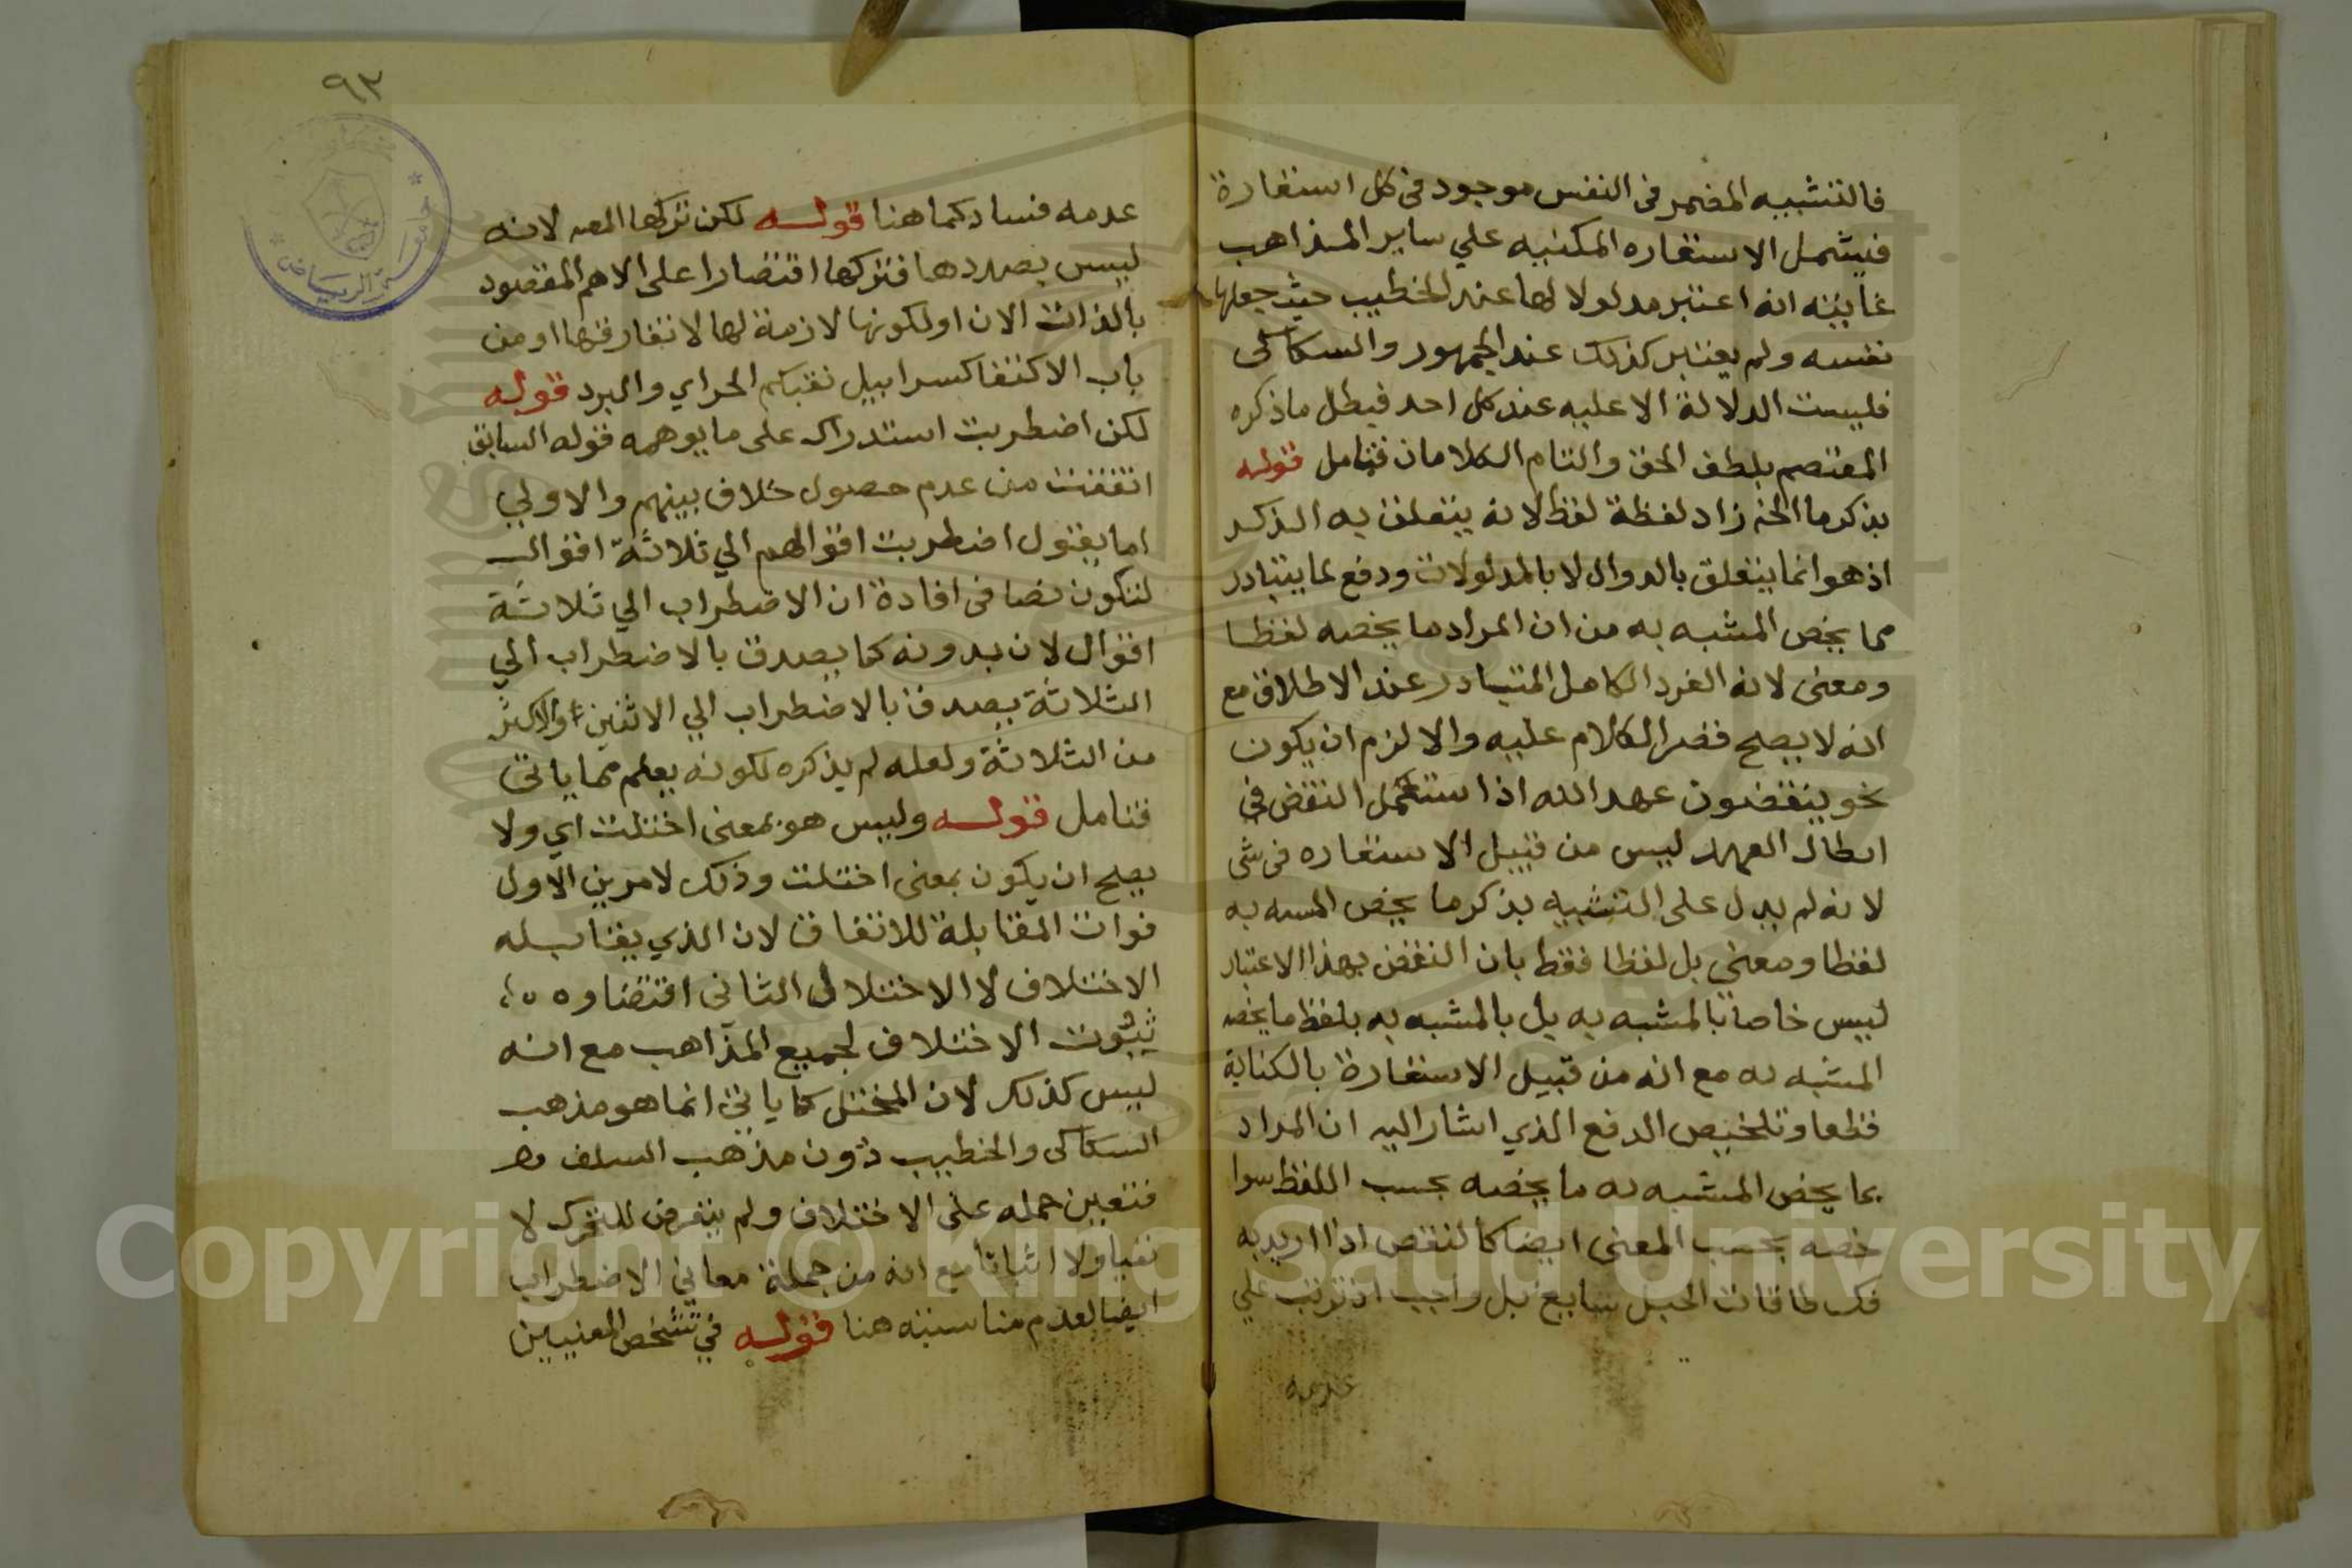 فالتشبيه المضمر فى النفس موجود فى كل استعارة
فيشمل الاستعاره المكنيه علي ساير المذاهب
غايته انه اعتبر مدلولا لها عند الخطيب حيث جعلها
نفسه ولم يعتبر كذلك عند الجمهور والسكاكى
فليست الدلالة الا عليه عند كل احد فبطل ماذكره
المعتصم بلطف الحق والتام الكلامان فتامل قوله
بذكرما الخ زاد لفظة لفظ لانه يتعلق به الذكر
اذ هو انما يتعلق بالدوال لا بالمدلولات ودفع لما يتبادر
مما يخص المشبه به من ان المراد ما يخصه لفظا
ومعنى لانه الفرد الكامل المتبادر عند الاطلاق مع
انه لا يصلح قصر الكلام عليه والا لزم ان يكون
نحو ينقضون عهد الله اذا استعمل النقض فى
ابطال العهد ليس من قبيل الاستعاره فى شى
لانه لم يدل على التشبيه بذكر ما يخص المسه به
لفظا ومعنى بل لفظا فقط بان النقض بهذا الاعتبار
ليس خاصا بالمشبه به بل بالمشبه به بلفظ ما يخصه
المشبه به مع انه من قبيل الاستعارة بالكناية
قطعا وتلخيص الدفع الذي اشار اليه ان المراد
بما يخص المشبه به ما يخصه بحسب اللفظ سوا
خصه بحسب المعنى ايضا كالنقض اذا اريد به
فك طاقات الحبل سايغ بل واجب اذ ترتب علي
عدمه
٩٣
جامعة الرياض
عدمه فساد كما هنا قوله لكن تركها المصـ لانه
ليس بصددها فتركها اقتصارا على الاهم المقصود
بالذات الان او لكونها لازمة لها لا تفارقها او من
باب الاكتفا كسرابيل تقيكم الحر اي والبرد قوله
لكن اضطربت استدراك على ما يوهمه قوله السابق
اتفقت من عدم حصول خلاف بينهم والاولي
اما يقول اضطربت اقوالهم الي ثلاثة اقوال
لتكون نصا فى افادة ان الاضطراب الي ثلاثة
اقوال لان بدونه كما يصدق بالاضطراب الي
الثلاثة يصدق بالاضطراب الي الاثنين والاكثر
من الثلاثة ولعله لم يذكره لكونه يعلم مما ياتى
فتامل قوله وليس هو بمعنى اختلت اي ولا
يصلح ان يكون بمعنى اختلت وذلك لامرين الاول
فوات المقابلة للاتفاق لان الذي يقابله
الاختلاف لا الاختلال الثانى اقتضاوه
ثبوت الاختلاف لجميع المذاهب مع انه
ليس كذلك لان المختل كما ياتى انما هو مذهب
السكاكى والخطيب دون مذهب السلف
فتعين حمله على الاختلاف ولم يتعرض للتحرك لا
نفيا ولا اثباتا مع انه من جملة معاني الاضطراب
ايضا لعدم مناسبته هنا قوله في تشخص المعنيين
Copyright © King Saud University